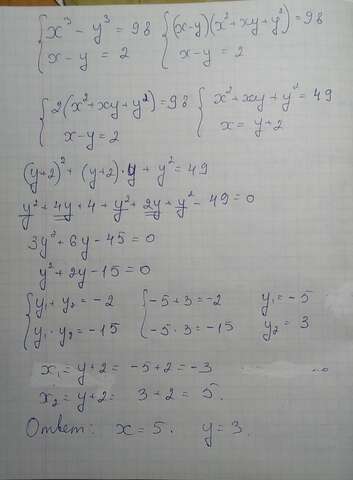 {x³ - y³ = 98 {(x-y)(x²+xy+y²)=98
x - y = 2 x-y = 2
{2(x²+xy+y²)=98 {x²+xy+y²=49
x-y=2 x = y+2
(y+2)² + (y+2)·y + y² = 49
y² + 4y + 4 + y² + 2y + y² - 49 = 0
3y² + 6y - 45 = 0
y² + 2y - 15 = 0
{y₁ + y₂ = -2 {-5+3 = -2 y₁ = -5
y₁ · y₂ = -15 -5·3 = -15 y₂ = 3
x₁ = y+2 = -5+2 = -3
x₂ = y+2 = 3+2 = 5.
Ответ: x = 5. y = 3.